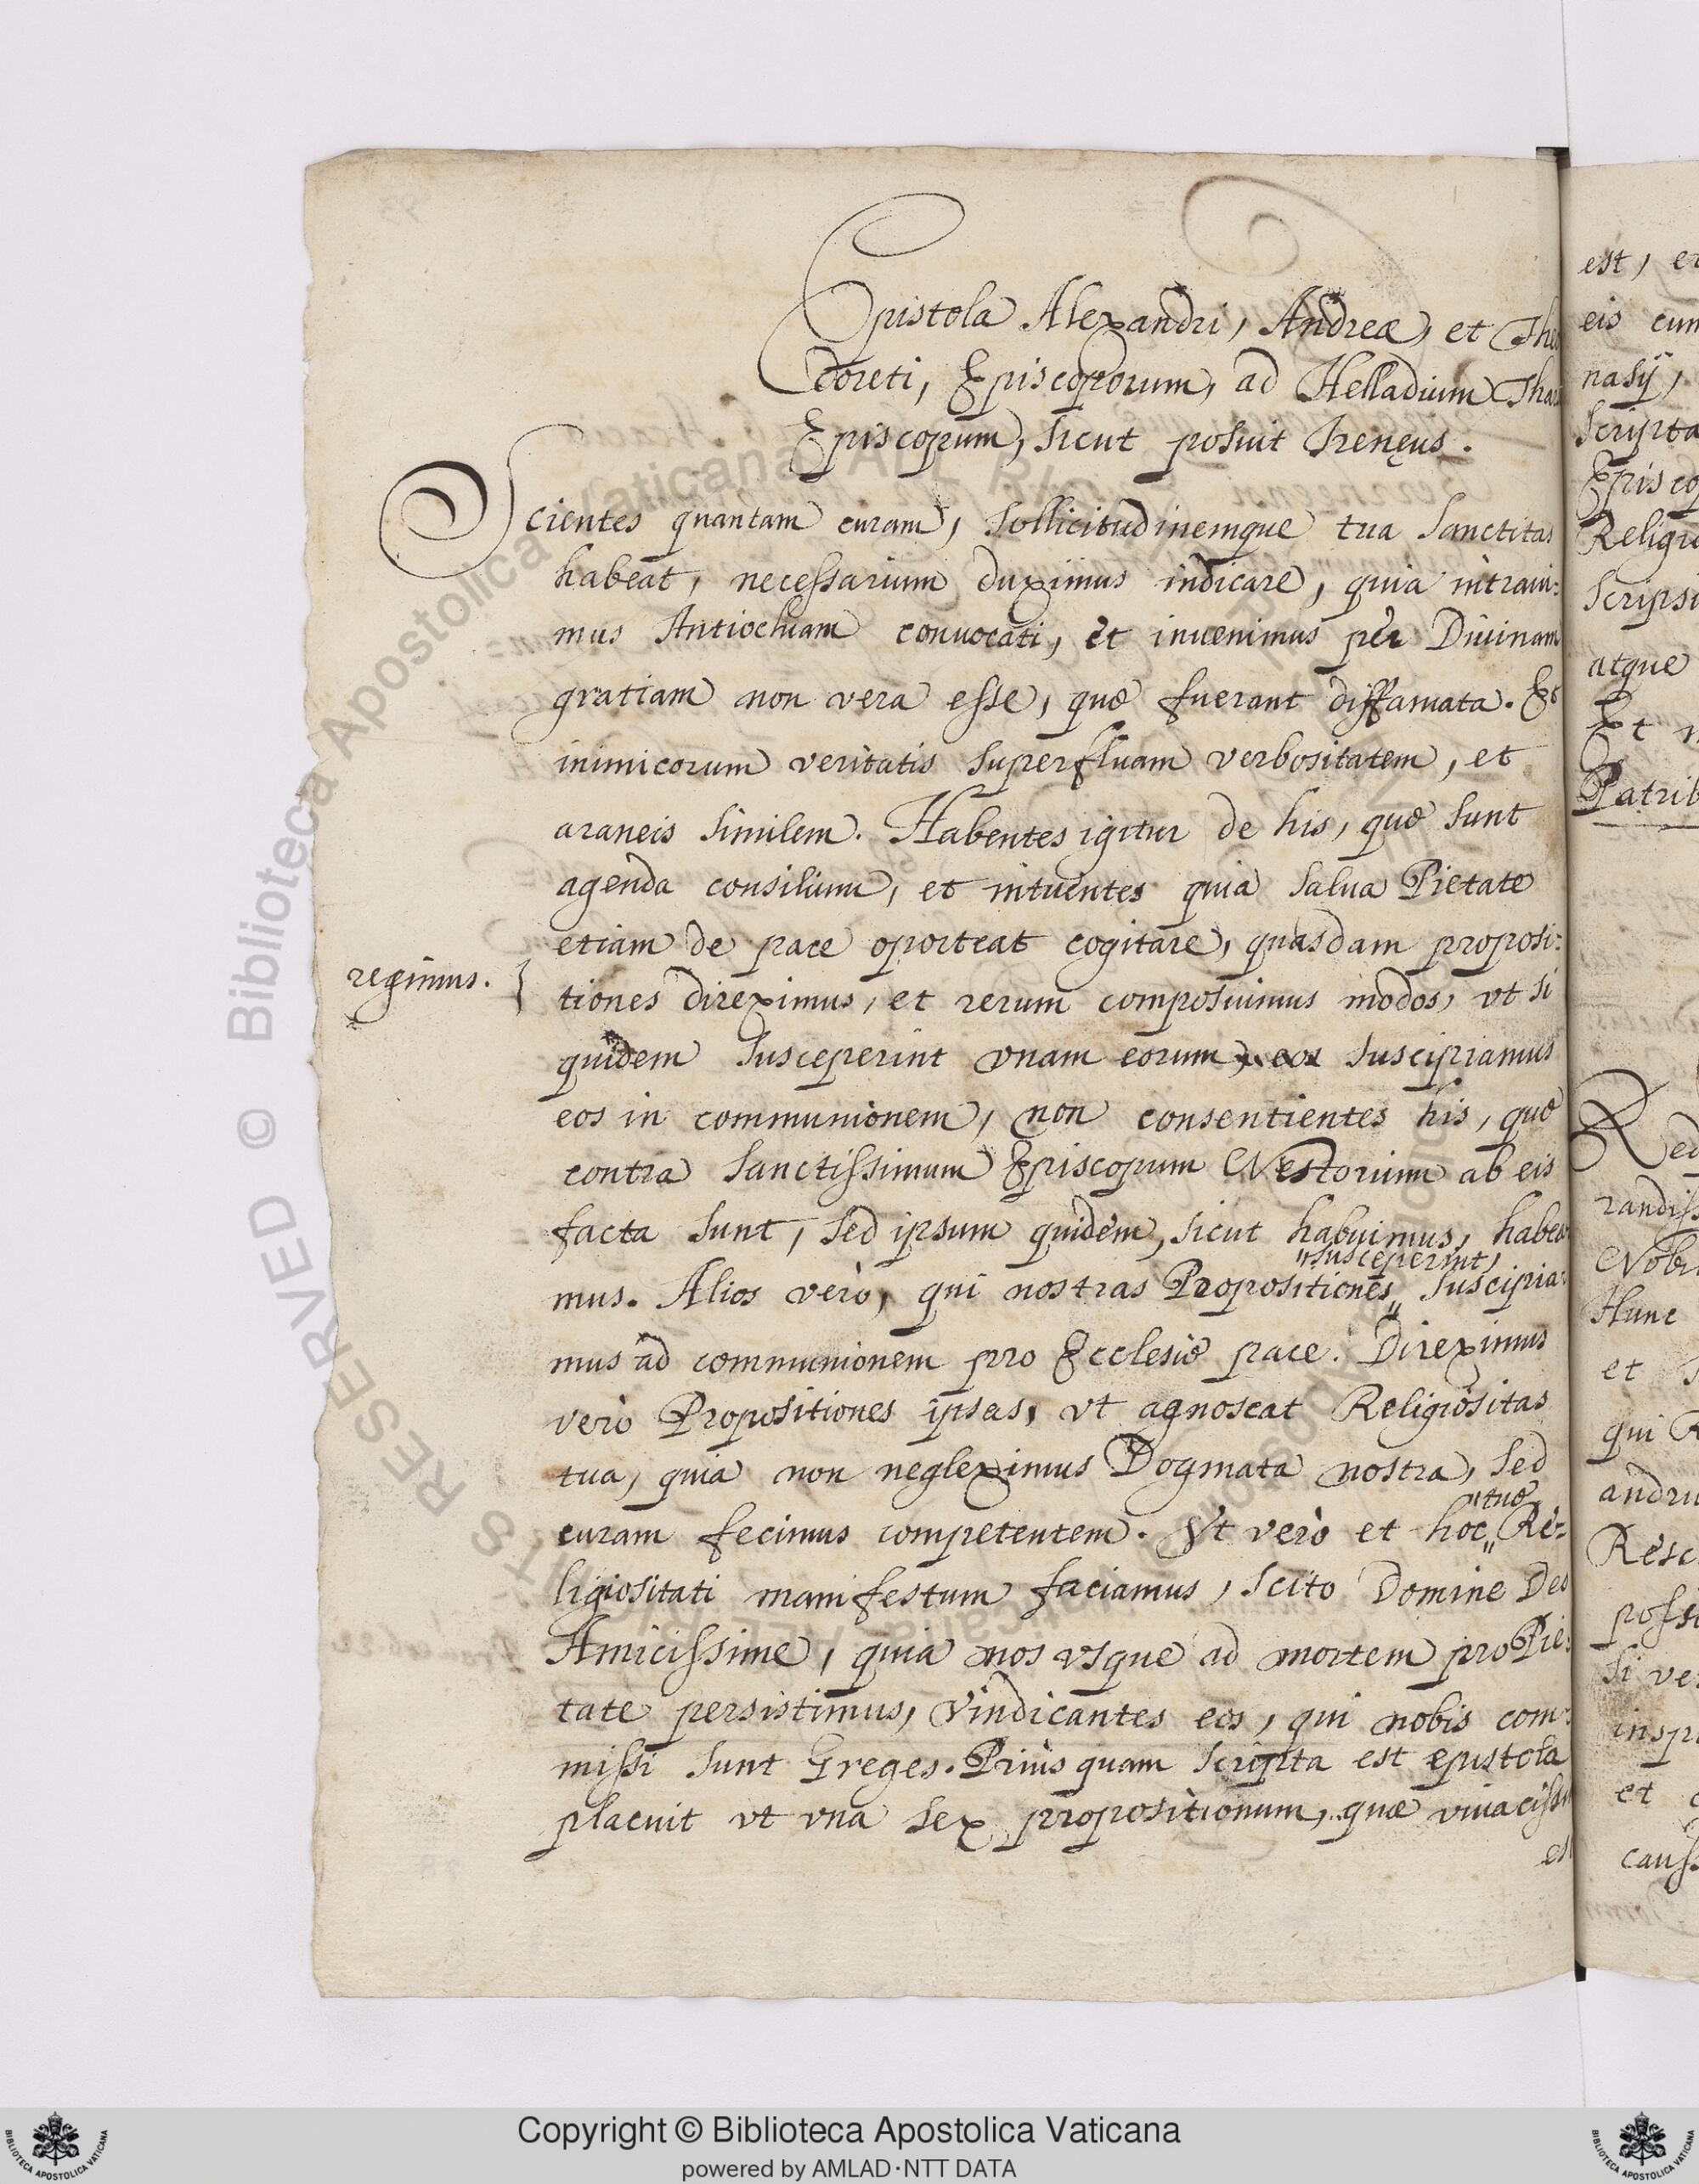 Epistola Alexandri, Andreæ, et Theo
doreti, Episcoporum, ad Helladium Thar
Episcopum, sicut posuit Irenęus.
Scientes quantam curam, sollicitudinemque tua Sanctitas
habeat, necessarium duximus indicare, quia intraui:
mus Antiochiam conuocati, et inuenimus per Diuinam
gratiam non vera esse, quę fuerant diffamata. Et
inimicorum veritatis superfluam verbositatem, et
araneis similem. Habentes igitur de his, quę sunt
agenda consilium, et intuentes quia salua Pietate
etiam de pace oporteat cogitare, quasdam proposi:
regimus.
tiones direximus, et rerum composuimus modos, vt si
quidem susceperint vnam eorum, eos suscipiamus
eos in communionem, non consentientes his, quę
contra Sanctissimum Episcopum Nestorium ab eis
facta sunt, sed ipsum quidem, sicut habuimus, habea
susceperint,
mus. Alios verò, qui nostras Propositiones suscipia:
mus ad communionem pro Ecclesię pace. Direximus
verò Propositiones ipsas, vt agnoscat Religiositas
tua, quia non negleximus Dogmata nostra, sed
tuę
curam fecimus competentem. Vt verò et hoc Re:
ligiositati manifestum faciamus, scito Domine Deo
Amicissime, quia nos vsque ad mortem pro Pie:
tate persistimus, vindicantes eos, qui nobis com:
missi sunt Greges. Priùs quam scripta est epistola
placuit vt vna sex propositionum, quæ viuacissi
est
est, et
eis cum
nasij,
Scripta
Episco
Religio
scripsi
atque
Et
Patrib
Red
randiss
Nobi
Hunc
et
qui
andru
Resc
posse
si ve
inspi
et
causs
© Biblioteca Apostolica Vaticana
ALL RIGHTS RESERVED
Copyright © Biblioteca Apostolica Vaticana
powered by AMLAD·NTT DATA
BIBLIOTECA APOSTOLICA VATICANA
BIBLIOTECA APOSTOLICA VATICANA